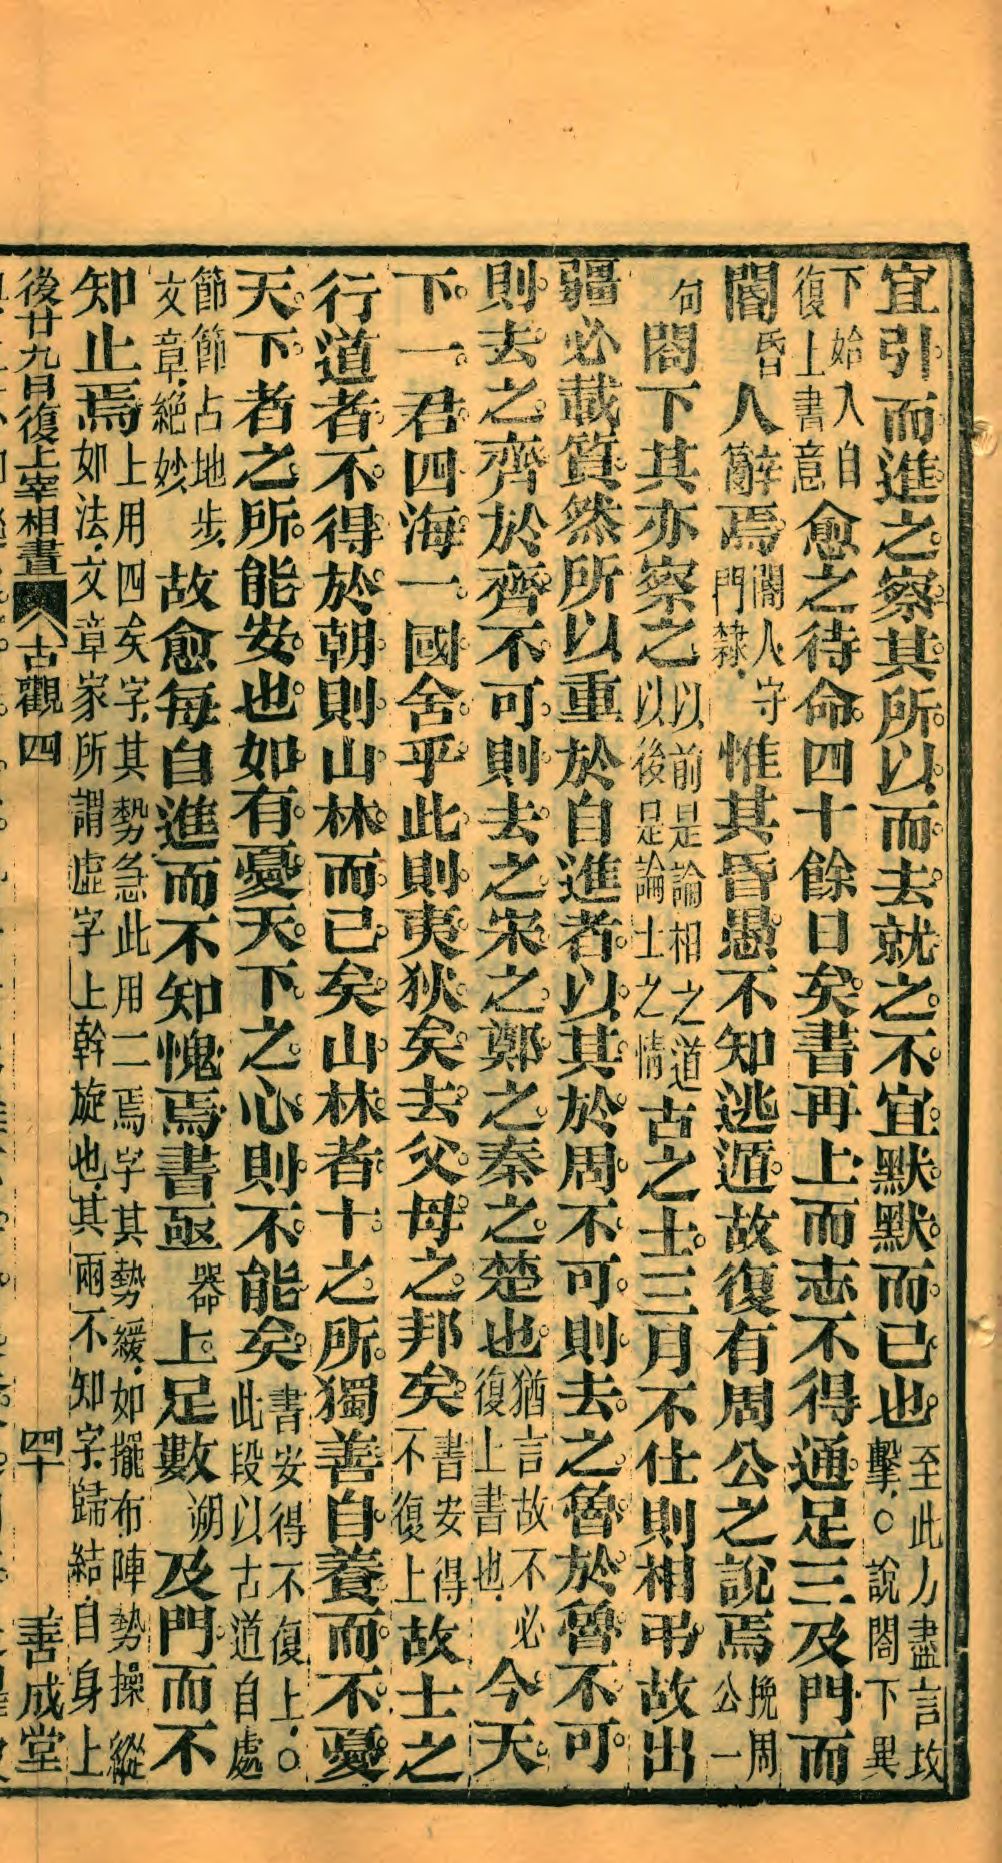 宜引而進之察其所以而去就之不宜默默而已也至此力盡言攻擊○說閤下異
下始入自復上書意愈之待命四十餘日矣書再上而志不得通足三及門而
閽昏人辭焉閽人守門隸惟其昏愚不知逃遁故復有周公之說焉挽周公一
句閤下其亦察之以前是論相之道以後是論士之情古之士三月不仕則相弔故出
疆必載質然所以重於自進者以其於周不可則去之魯於魯不可
則去之齊於齊不可則去之宋之鄭之秦之楚也猶言故不必復上書也今天
下一君四海一國舍乎此則夷狄矣去父母之邦矣書安得不復上故士之
行道者不得於朝則山林而已矣山林者士之所獨善自養而不憂
天下者之所能安也如有憂天下之心則不能矣書安得不復上○此段以古道自處
節節占地步文章絕妙故愈每自進而不知愧焉書亟器上足數朔及門而不
知止焉上用四矣字其勢急此用二焉字其勢緩如擺布陣勢操縱如法文章家所謂虛字上斡旋也其兩不知字歸結自身上
後廿九日復上宰相書 古觀四 四十 善成堂